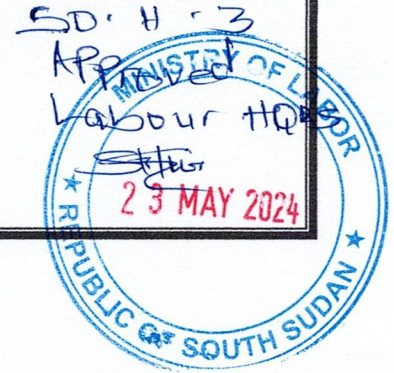 SD. H. 3
Approved
Labour HQRS
23 MAY 2024
MINISTRY OF LABOR
REPUBLIC OF SOUTH SUDAN